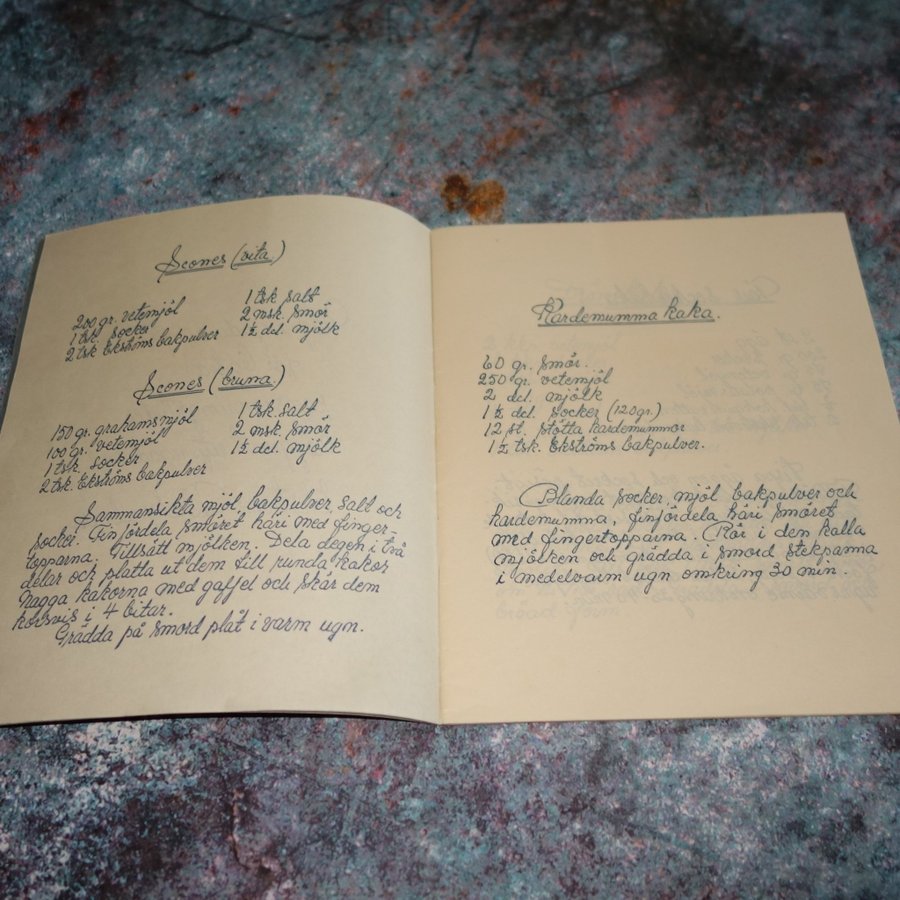 Scones (vita)
200 gr. vetemjöl
1 tsk. socker
2 tsk Ekströms bakpulver
1 tsk salt
2 msk. smör
1½ del. mjölk
Scones (bruna)
150 gr. grahamsmjöl
100 gr. vetemjöl
1 tsk. socker
2 tsk. Ekströms bakpulver
1 tsk. salt
2 msk. smör
1½ del. mjölk
Sammansikta mjöl, bakpulver, salt och
socker. Finfördela smöret häri med finger-
topparna. Tillsätt mjölken. Dela degen i två
delar och platta ut dem till runda kakor
Nagga kakorna med gaffel och skär dem
korsvis i 4 bitar.
Grädda på smord plåt i varm ugn.
Kardemumma kaka.
60 gr. smör.
250 gr. vetemjöl
2 del. mjölk
1½ del. socker (120gr.)
12 st. stötta kardemummor
1½ tsk. Ekströms bakpulver.
Blanda socker, mjöl bakpulver och
kardemumma, finfördela häri smöret
med fingertopparna. Rör i den kalla
mjölken och grädda i smord stekpanna
i medelvarm ugn omkring 30 min.